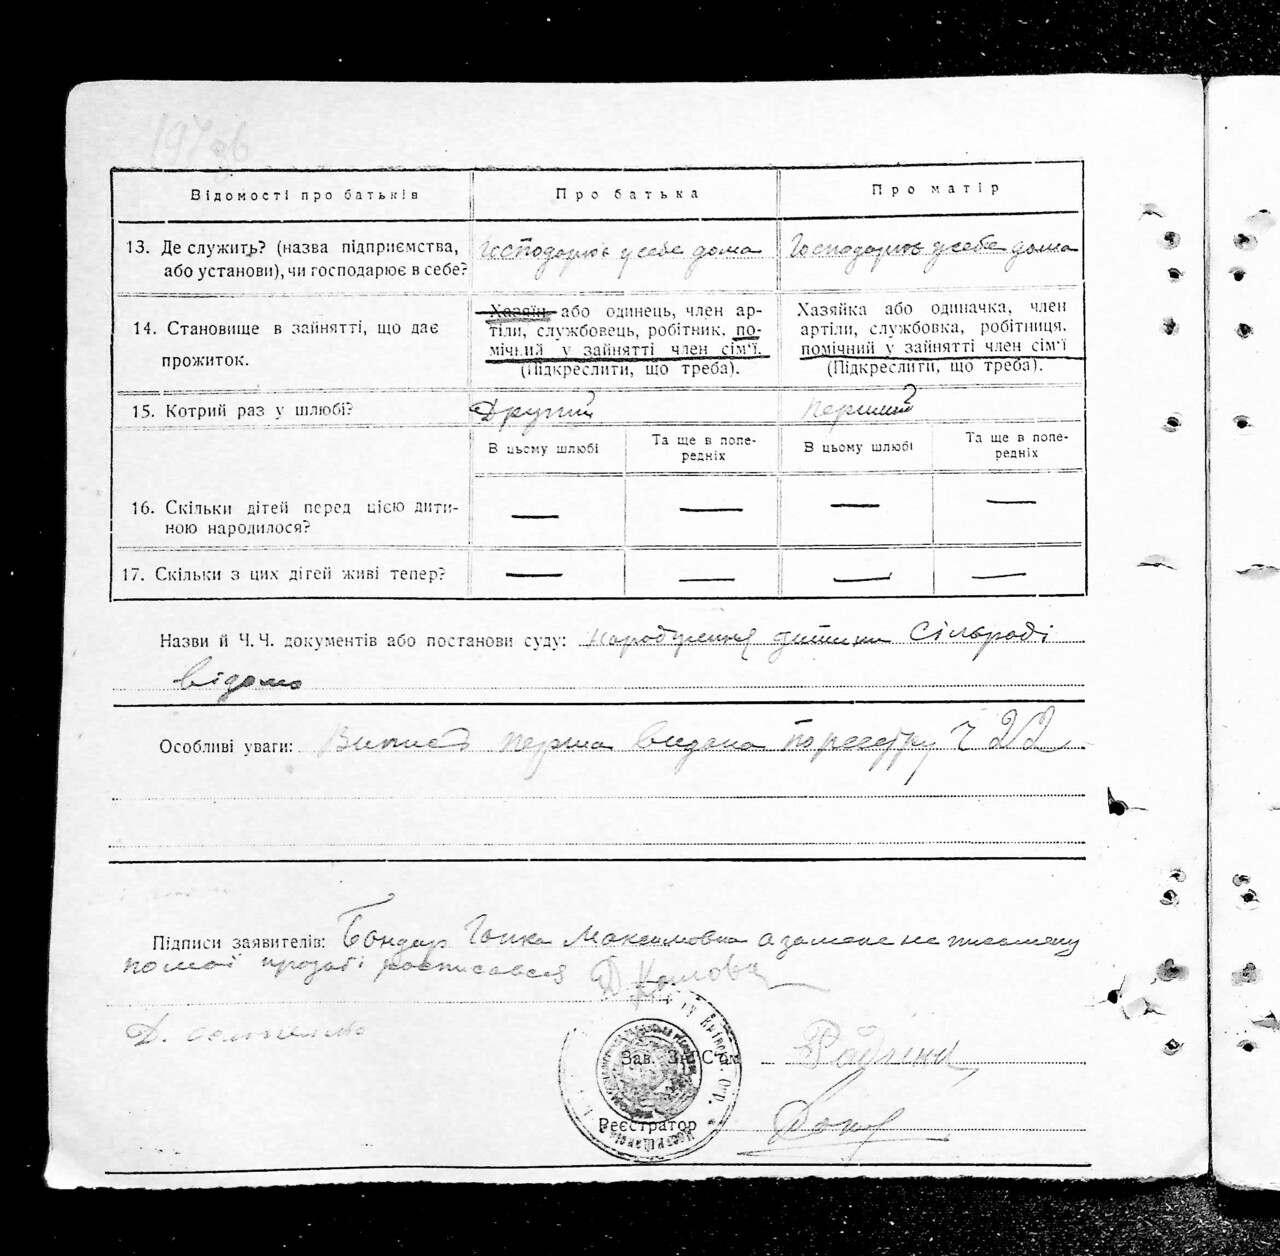 197зв
Відомості про батьків
Про батька
Про матір
13. Де служить? (назва підприємства,
або установи), чи господарює в себе?
Господарює у себе дома
Господарює у себе дома
14. Становище в зайнятті, що дає
прожиток.
Хазяїн або одинець, член ар-
тіли, службовець, робітник, по-
мічний у зайнятті член сім'ї.
(Підкреслити, що треба).
Хазяйка або одиначка, член
артіли, службовка, робітниця,
помічний у зайнятті член сім'ї
(Підкреслити, що треба).
15. Котрий раз у шлюбі?
Другий
Перший
В цьому шлюбі
Та ще в попе-
редніх
В цьому шлюбі
Та ще в попе-
редніх
16. Скільки дітей перед цією дити-
ною народилося?
— — — —
17. Скільки з цих дітей живі тепер?
— — — —
Назви й Ч.Ч. документів або постанови суду: народження дитини сільраді
відомо
Особливі уваги: Випись перша видана по реєстру ч 22
Підписи заявителів: Бондар Гапка Максимовна а за мене не письмену
по моїй прозьбі росписався
Зав. ЗАГС'ом
Реєстратор